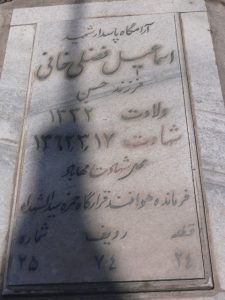 آرامگاه پاسدار شهید
اسماعیل فضلی خانی
فرزند حسن
ولادت ۱۳۳۲
شهادت ۱۳۶۲٫۳٫۱۷
محل شهادت مهاباد
فرمانده هوافند قرارگاه حمزه سیدالشهداء
قطعه ردیف شماره
۲۴ ۷۴ ۲۵